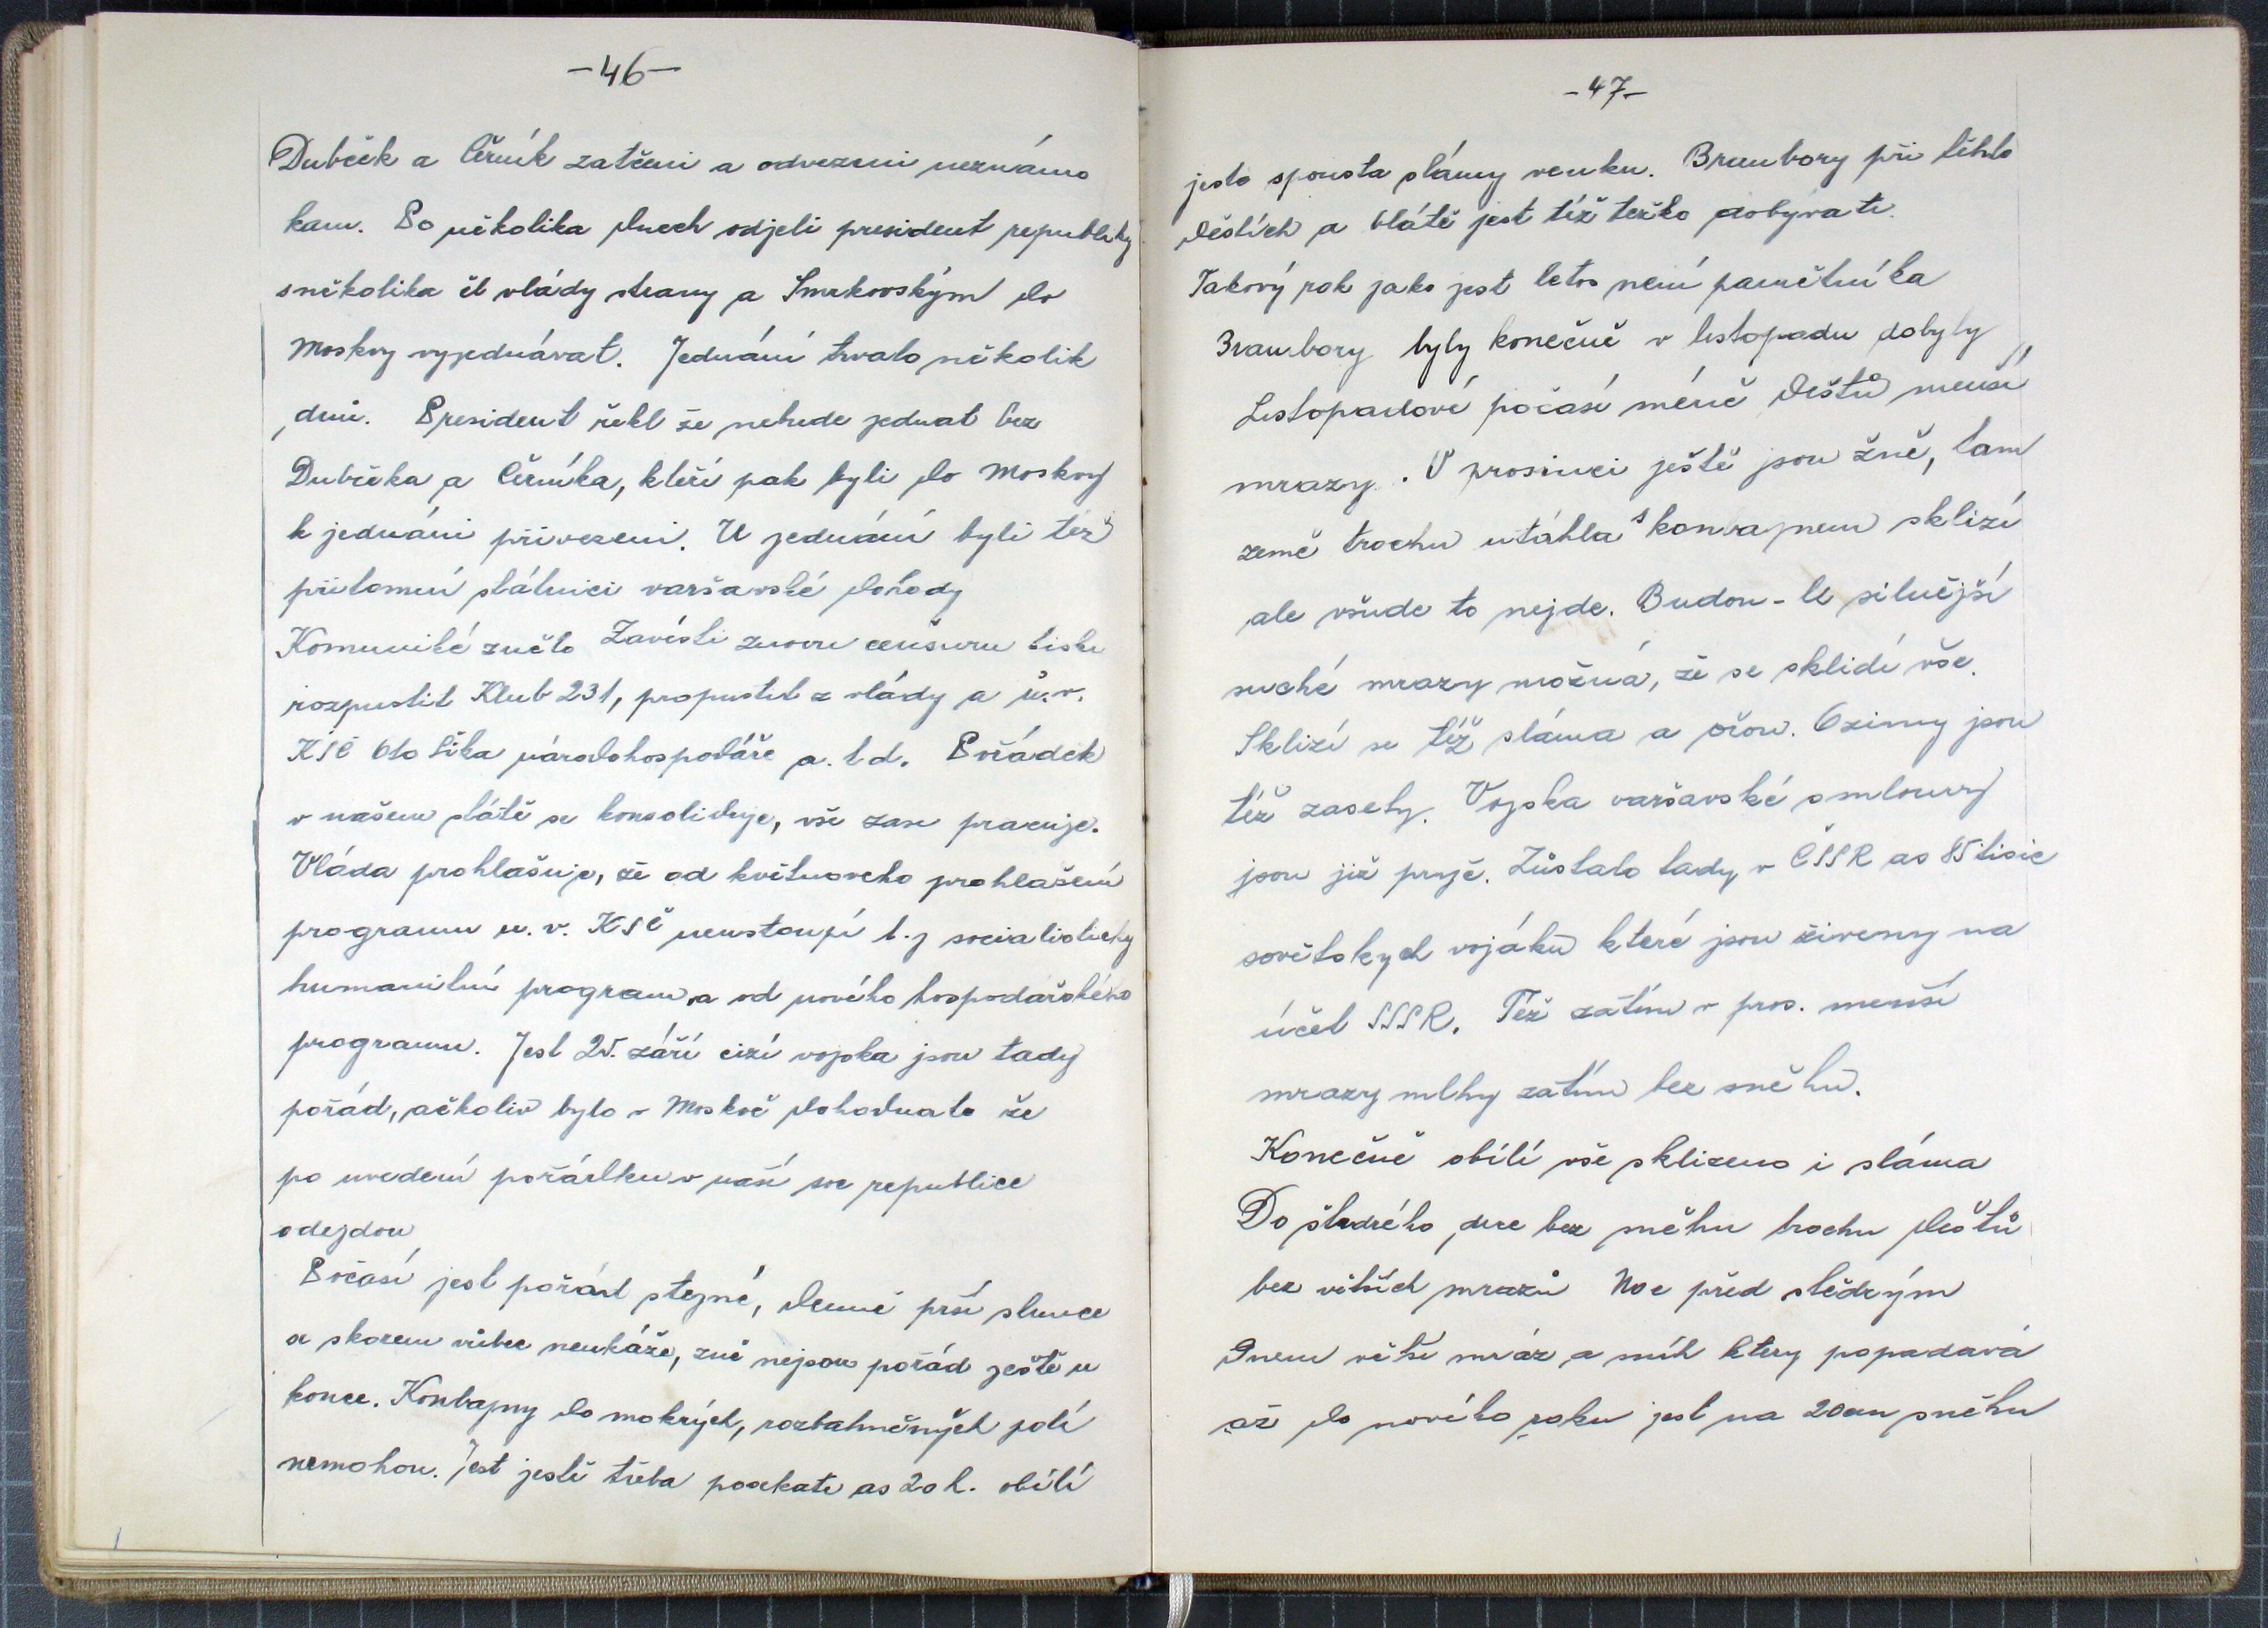 -46-
Dubček a Černík zatčeni a odvezeni neznámo
kam. Po několika dnech odjeli president republiky
s několika čl vlády strany a Smrkovským do
Moskvy vyjednávat. Jednání trvalo několik
dnů. President řekl že nebude jednat bez
Dubčeka a Černíka, kteří pak byli do Moskvy
k jednáni přivezeni. U jednání byli též
přítomní státnici varšavské dohody
Komuniké znělo Zavésti znovu censuru tisku
rozpustit Klub 231, propustit z vlády a ú.v.
KSČ Oto Šika národohospodáře a. t d. Pořádek
v našem státě se konsoliduje, vše zase pracuje.
Vláda prohlašuje, že od květnoveho prohlašení
programu u. v. KSČ neustoupí t. j socialistický
humanitní program a od nového hospodařského
programu. Jest 25. září cizí vojska jsou tady
pořád, ačkoliv bylo v Moskvě dohodnuto že
po uvedení pořádku v naší republice
odejdou
Počasí jest pořád stejné, denně prší slunce
a skorem vůbec neukáže, žně nejsou pořád ještě u
konce. Konbajny do mokrých, rozbahněných polí
nemohou. Jest jestě třeba posekati as 20 h. obílí
-47-
jesto spousta slámy venku. Brambory při těhto
deštích a blátě jest též težko dobývati.
Takový rok jako jest letos není pamětníka
Brambory byly konečně v listopadu dobyly
Listopadové počasí méně deštů menší
mrazy. V prosinci ještě jsou žně, tam
země trochu utáhla s konvajnem sklizí
ale všude to nejde. Budou-li silnější
suché mrazy možná, že se sklidí vše.
Sklizí se též sláma a ořou. Ozimy jsou
též zasety. Vojska varšavské smlouvy
jsou již pryč. Zůstalo tady v ČSSR as 85 tisic
sovětských vojáků které jsou živeny na
účet SSSR. Též zatím v pros. menší
mrazy mlhy zatím bez sněhů.
Konečně obílí vše sklizeno i sláma
Do štedrého dne bez sněhu trochu deštů
bez větších mrazů Noc před štědrým
Dnem větší mráz a sníh ktery popadavá
až do nového roku jest na 20 cm sněhu